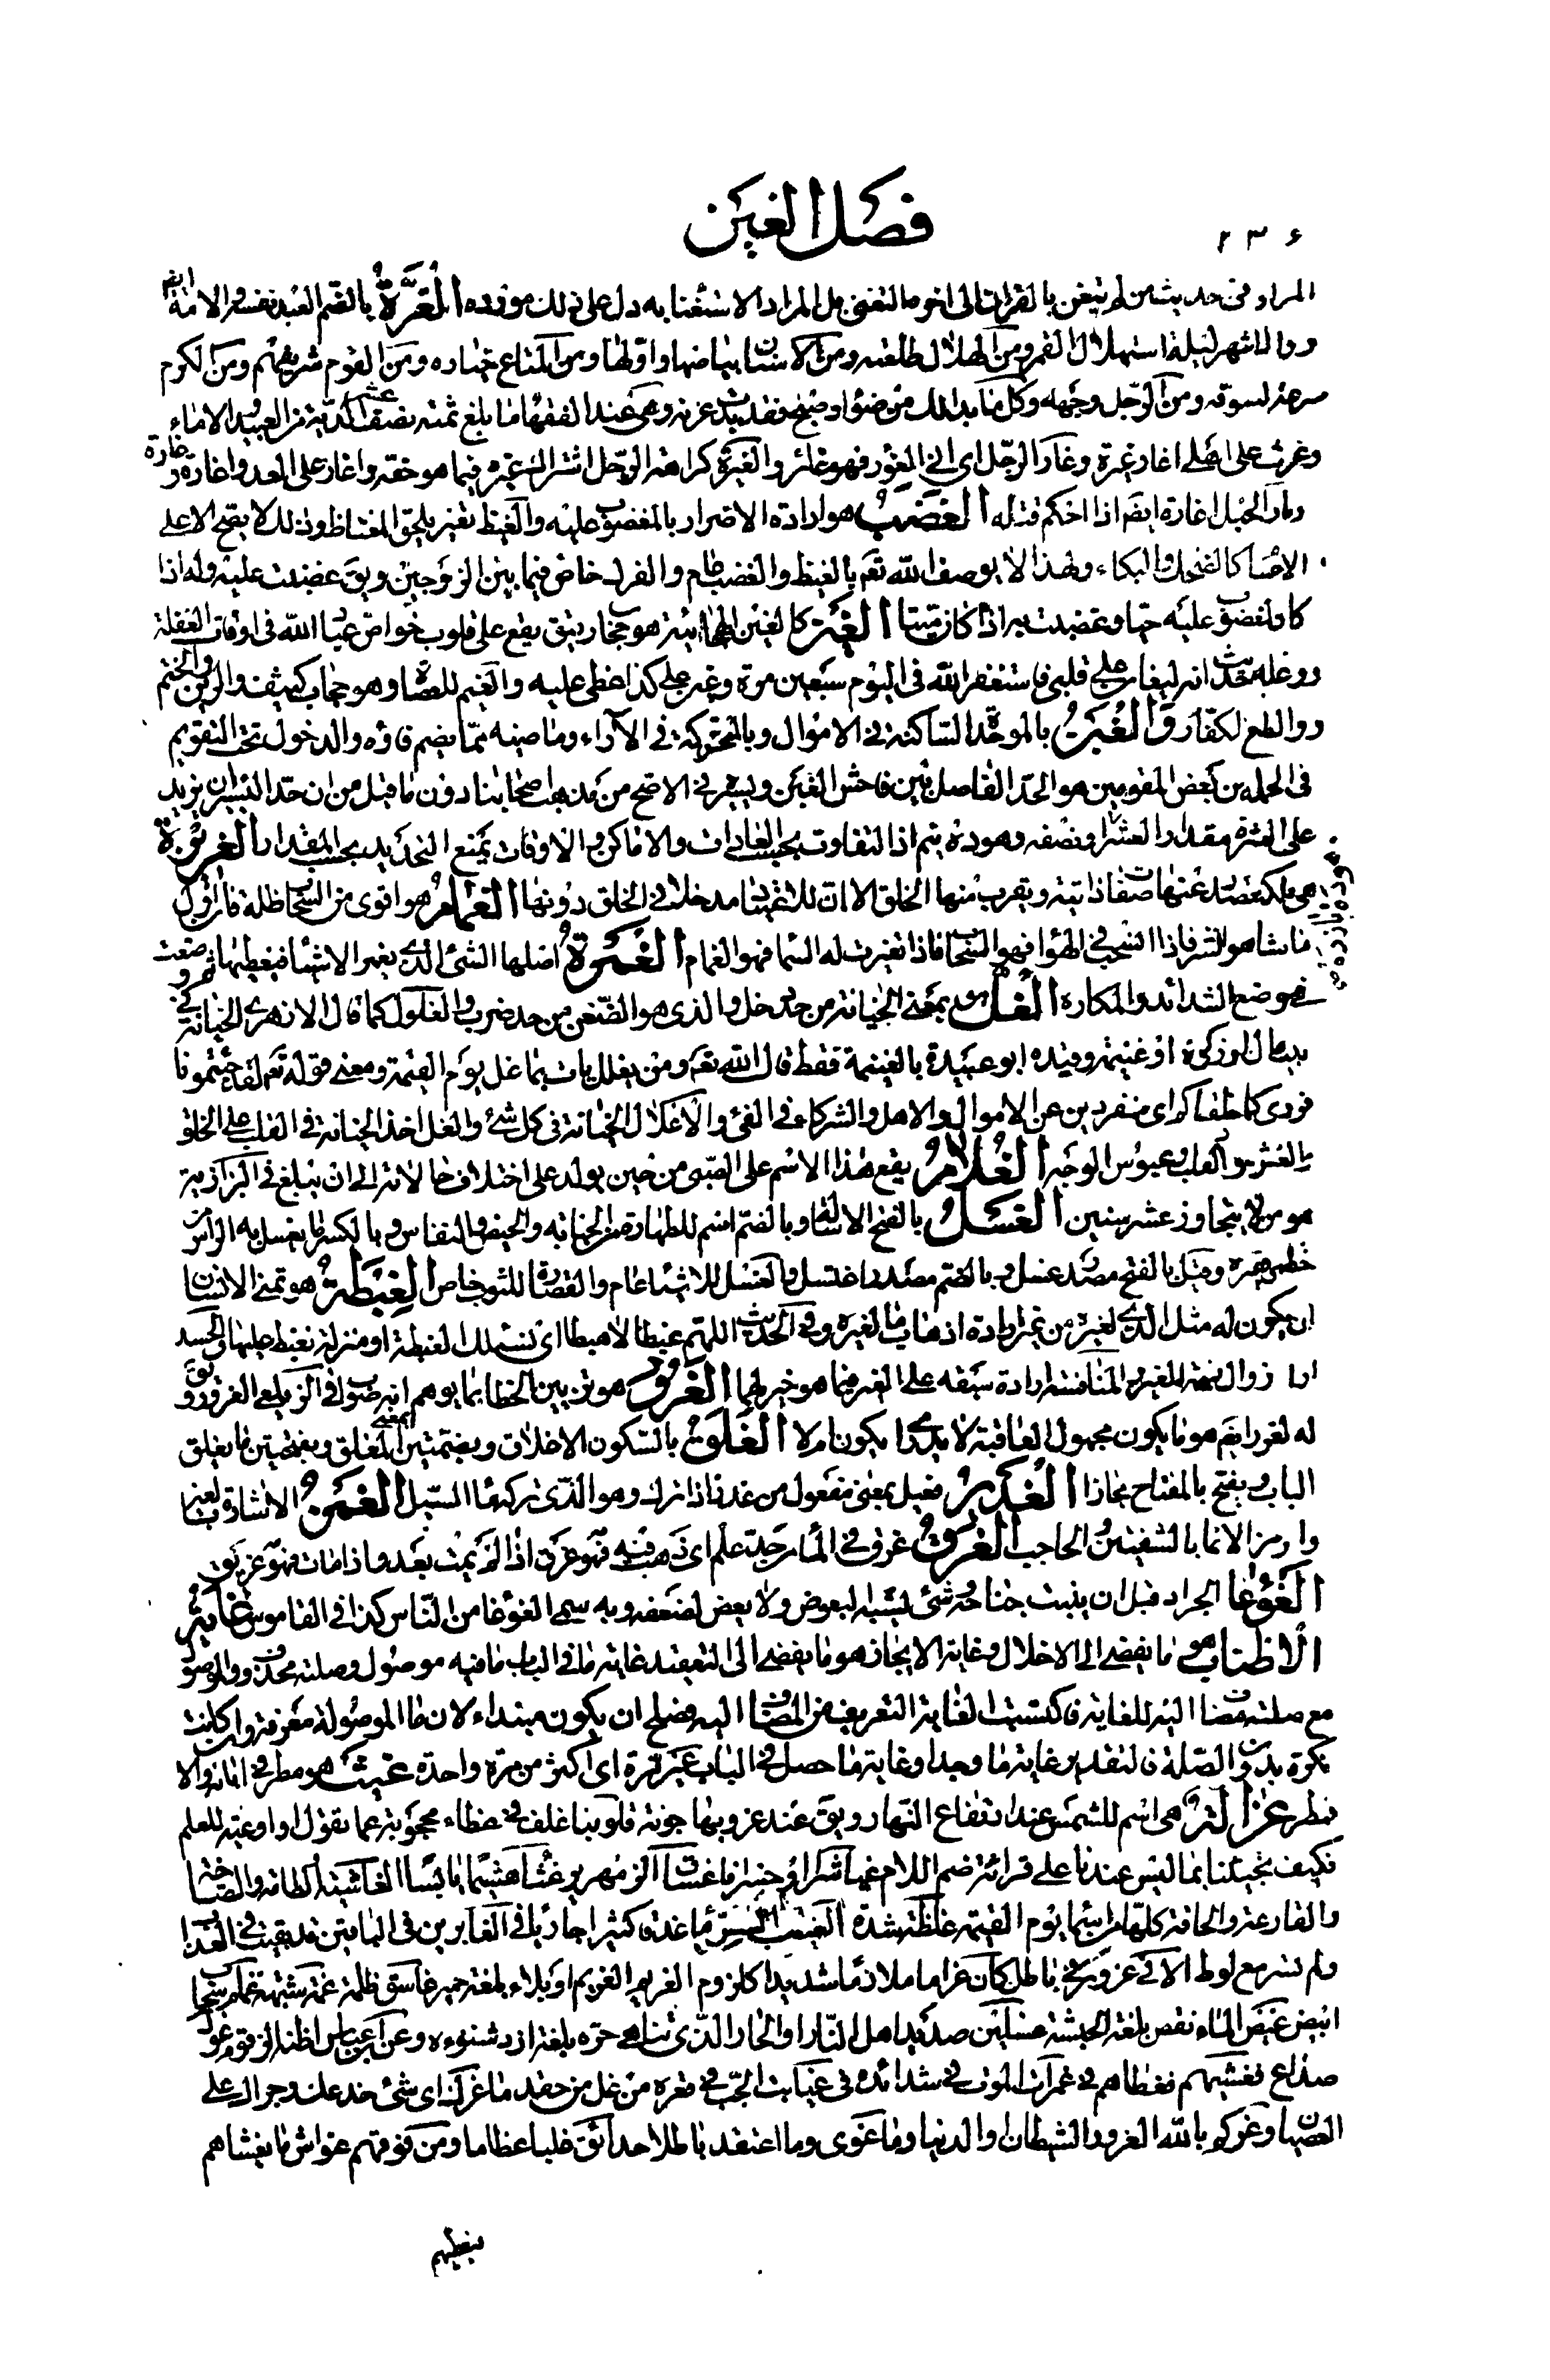 ٢٣٤
فصل الغين
المراد في حديث من لم يتغن بالقران الى اخره التغنى بل المراد الاستغناء به دل على ذلك مورده الغرة بالضم العبد نفسه والامة ايضا
ومن الشهر ليلة استهلال القمر ومن الهلال طلعته ومن الاسنان بياضها واولها ومن المتاع خياره ومن القوم شريفهم ومن الكرم
سرعة بسوقه ومن الرجل وجهه وكل ما بدا لك من ضوء او صبح فقد بدت غرته وهي عند الفقهاء ما بلغ ثمنه نصف عشر الدية من العبيد والاماء
وغرت على اهلي اغار غيرة وغار الرجل اى اتى الغور فهو غائر والغيرة كراهة الرجل اشتراك غيره فيما هو حقه واغار على العدو اغارة وغارة
وغار الحبل اغارة ايضا اذا احكم فتله الغضب هو ارادة الاضرار بالمغضوب عليه والغيظ تغير يلحق المغتاظ وذلك لا يصح الا على
الاجسام كالضحك والبكاء ولهذا لا يوصف الله تعم بالغيظ والغضب عام والفرك خاص فيما بين الزوجين ويق غضبت عليه وله اذا
كان المغضوب عليه حيا وغضبت به اذا كان ميتا الغين كالغين المهملة هو حجاب رقيق يقع على قلوب خواص عباد الله في اوقات الغفلة
وعليه حديث انه ليغان على قلبي فاستغفر الله في اليوم سبعين مرة وغين على كذا غطى عليه والغيم للعصاة وهو حجاب كثيف والرين والختم
والطبع للكفار والغبن بالموحدة الساكنة في الاموال وبالمتحركة في الآراء وما صيغه مما يضم فاؤه والدخول تحت التقويم
في الجملة من بعض المقومين هو الحد الفاصل بين فاحش الغبن ويسيره في الاصح من مذهب اصحابنا دون ما قيل من ان حد اليسير ان يزيد
على الثمرة مقدار العشر او نصفه وهو ده نيم اذ التفاوت بحسب العادات والاماكن والاوقات يمنع التحديد بحسب المقدار الغريزة
هي ملكة تصدر عنها صفات ذاتية ويقرب منها الخلق الا ان للاعتياد مدخلا في الخلق دونها الغمام هو اقوى من السحاب ظلمة فان اول
ما ينشأ هو النشر فاذا انسحب في الهواء فهو السحاب فاذا تغيرت له السماء فهو الغمام الغمرة اصلها الشئ الذي يغمر الاشياء فيغطيها ثم وضعت
في موضع الشدائد والمكاره الغلول هو بمعنى الخيانة من حد دخل والذي هو الضغن من حد ضرب والغلول كما قال الازهري الخيانة في
بيت مال او زكوة او غنيمة وقيده ابو عبيدة بالغنيمة فقط قال الله تعم ومن يغلل يات بما غل يوم القيمة ومعنى قوله تعم لقد جئتمونا
فردى كما خلقناكم اى منفردين عن الاموال والاهل والشركاء في الغى والاغلال الخيانة في كل شئ والغل اخذ الخيانة في القلب على الخلق
بالغش من القلب وعبوس الوجه الغلام يقع هذا الاسم على الصبي من حين يولد على اختلاف حالاته الى ان يبلغ في البزازية
هو من لا يتجاوز عشر سنين الغسل بالفتح الاسالة وبالضم اسم للطهارة من الجنابة والحيض والنفاس وبالكسر ما يغسل به الرأس من
خطمى وغيره وقيل بالفتح مصدر غسل وبالضم مصدر اغتسل والغسل للاشياء عام والقصارة للثوب خاص الغبطة هو تمني الانسان
ان يكون له مثل الذي لغيره من غير ارادة اذهاب ما لغيره وفي الحديث اللهم غبطا لا هبطا اى نسئلك الغبطة او منزلة نغبط عليها والحسد
ارادة زوال نعمة الغير والمنافسة ارادة سبقه على الغير فيما هو خير لهما الغرور هو تزيين الخطا بما يوهم انه صواب في الزيلعي الغرور ويق
له الغرر ايضم هو ما يكون مجهول العاقبة لا يدرى ايكون ام لا الغلق بالسكون الاغلاق وبفتحتين بمعنى المغلق وبضمتين ما يغلق
الباب ويفتح بالمفتاح مجازا الغدير فعيل بمعنى مفعول من غادر اذا ترك وهو الذي تركه ماء السيل الغمز الاشارة بالعين
والرمز الايماء بالشفتين والحاجب الغرق غرق في الماء من حد علم اى ذهب فيه فهو غرق اذا لم يمت بعد واذا مات فهو غريق
الغوغا الجراد قبل ان ينبت جناحه وشئ يشبه البعوض ولا يعض لضعفه وبه سمي الغوغا من الناس كذا في القاموس غاية
الاطناب هو ما يفضى الى الاخلال وغاية الايجاز هو ما يفضى الى التعقيد غاية ما في الباب ما فيه موصول وصلته محذوف والموصول
مع صلته مضاف اليه للغاية فاكتسبت الغاية التعريف من المضاف اليه فصلح ان يكون مبتداء لان ما الموصولة معرفة وان كانت
نكرة بدون الصلة فالتقدير غاية ما وجد او غاية ما حصل في الباب غير مرة اى اكثر من مرة واحدة غيث هو مطر في ابانه والا
فمطر غزالة هي اسم للشمس عند ارتفاع النهار ويق عند غروبها جونة قلوبنا غلف في غطاء محجوبة عما تقول او اوعية للعلم
فكيف تجيئنا بما ليس عندنا على قرائة ضم اللام غيا شرا او خسرانا غساق الزمهرير غثاء هشيما يابسا الغاشية الطامة والصاخة
والقارعة والحاقة كلها من اسماء يوم القيمة غلظة شدة الغيب السر ماء غدقا كثيرا جاريا في الغابرين في الباقين قد بقيت في العذاب
ولم تسر مع لوط الا في غرور في باطل كان غراما ملازما شديدا كلزوم الغريم الغريم او بلاء بلغة حمير غاسق ظلمة غمة شبهة غمام سحاب
ابيض غيض الماء نقص بلغة الحبشة غسلين صديد اهل النار او الحار الذي تناهى حره بلغة ازد شنوءة وعن ابن عباس اظنه الزقوم غول
صداع فغشيهم فغطاهم في غمرات الموت في شدائده في غيابت الجب في قعره من غل من حقد ما غرك اى شئ خدعك وجراك على
العصيان وغركم بالله الغرور الشيطان او الدنيا وما غوى وما اعتقد باطلا حدائق غلبا عظاما ومن فوقهم غواش ما يغشاهم
فيغطيهم